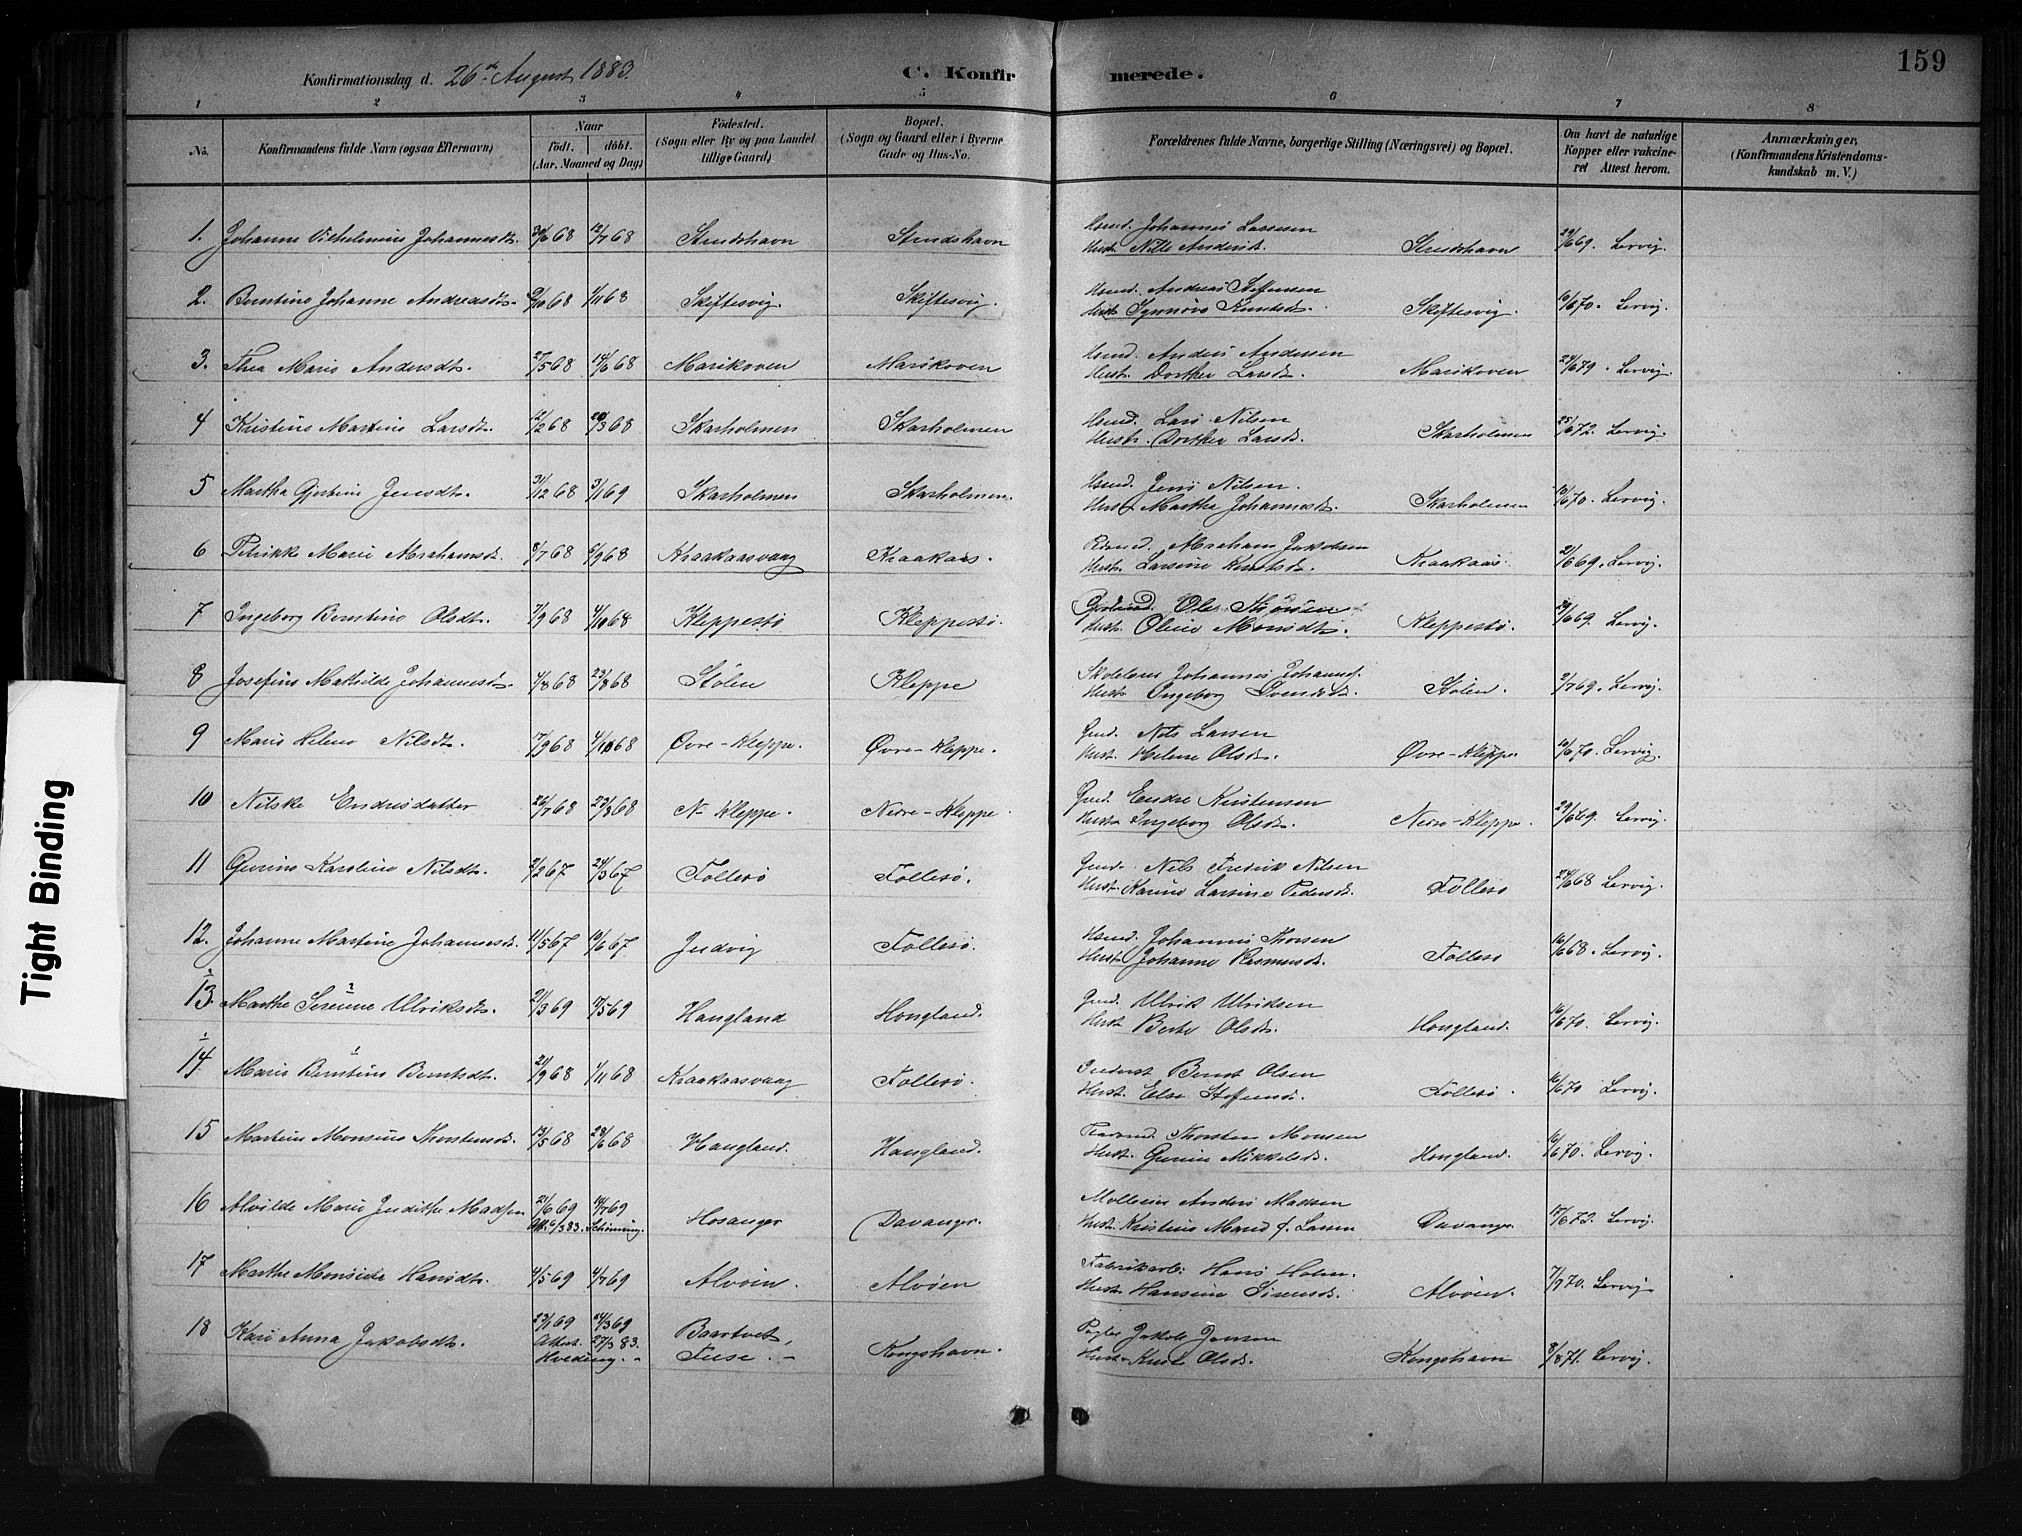 159
Konfirmationsdag d. 26de August 1883.
C. Konfirmerede.
1 2 3 4 5 6 7 8
No.
Konfirmandens fulde Navn (ogsaa Efternavn)
Naar
født. döbt.
(Aar, Maaned og Dag)
Födested.
(Sogn eller By og paa Landet
tillige Gaard)
Bopæl.
(Sogn og Gaard eller i Byerne
Gade og Hus-No.
Forældrenes fulde Navne, borgerlige Stilling (Næringsvei) og Bopæl.
Om havt de naturlige
Kopper eller vakcine-
ret Attest herom.
Anmærkninger,
(Konfirmandens Kristendoms-
kundskab m. V.)
1. Johanne Vilhelmine Johannesdt. 30/6 68 12/7 68 Strudshavn Strudshavn Hsmd. Johannes Lassesen
Hust. Nille Andersd. Strudshavn 29/6 69. Lervig.
2. Berntine Johanne Andreasdt. 9/10 68 1/11 68 Skiftesvig. Skiftesvig. Hsmd. Andreas Steffensen
Hust. Synnøve Knutsdt. Skiftesvig. 10/6 70. Lervig.
3. Thea Marie Andersdt. 27/5 68 14/6 68 Marikoven Marikoven Hsmd. Anders Andersen
Hust. Dorthea Larsdt. Marikoven 24/6 79. Lervig.
4 Kristine Martine Larsdt. 12/2 68 29/3 68 Skarholmen Skarholmen Hsmd. Lars Nilsen
Hustr. Dorthea Larsdt. Skarholmen 25/6 72. Lervig.
5 Martha Gjertine Jensdt. 31/12 68 3/1 69 Skarholmen Skarholmen. Hsmd. Jens Nilsen.
Hust. Martha Johannesdt. Skarholmen 10/6 70. Lervig.
6 Petrikke Marie Abrahamsdt. 8/7 68 6/9 68 Kraakaasvaag Kraakaas. Abraham Jakobsen
Hust. Larsine Knutsdt. Kraakaas. 2/6 69. Lervig.
7 Ingeborg Berntine Olsdt. 7/9 68 4/10 68 Kleppestø Kleppestø. Ole
Hust. Oline Monsdt. Kleppestø. 29/6 69. Lervig.
8 Josefine Mathilde Johannesdt. 4/8 68 23/8 68 Stølen Kleppe Skolelær. Johannes Johannes.
Hust. Ingeborg Svendsdt. Stølen. 2/7 69. Lervig.
9 Marie Helene Nilsdt. 17/9 68 4/10 68 Øvre-Kleppe. Øvre-Kleppe. Gmd. Nils Larsen
Hust. Helene Olsdt. Øvre-Kleppe 10/6 70. Lervig.
10 Nilske Endresdatter 26/7 68 23/8 68 N-Kleppe. Nedre-Kleppe. Gmd. Endre Kristensen
Hust. Ingeborg Olsdt. Nedre-Kleppe. 29/6 69. Lervig.
11 Gurine Karoline Nilsdt. 2/2 67 24/3 67 Follesø Follesø. Gmd. Nils Fredrik Nilsen
Hust. Karine Larsine Pedersdt. Follesø 24/6 68 Lervig.
12. Johanne Martine Johannesdt. 11/5 67 10/6 67 Judvig Follesø. Hsmd. Johannes Thorsen
Hust. Johanne Rasmusdt. Follesø 16/6 68. Lervig.
2
13. Marthe Serine Ulriksdt. 21/3 69 17/5 69 Haugland Hougland. Gmd. Ulrik Ulriksen
Hust. Berte Olsdt. Hougland. 16/6 70. Lervig.
1
14 Marie Berntine Berntsdt. 21/9 68 1/11 68 Kraakaasvaag Follesø. Inderst Bernt Olsen
Hust. Else Steffensdt. Follesø. 16/6 70 Lervig.
15 Martine Monsine Thorstensdt. 13/5 68 28/6 68 Haugland. Haugland. Thorsten Monsen
Hust. Gurine Mikkelsdt. Hougland. 16/6 70. Lervig.
16 Alvilde Marie Judithe Madsen 21/6 69 14/7 69
Att. 6/3 83. Schiøning. Hosanger Davanger. Mølleeier Anders Madsen
Hust. Kristine Marie f. Larsen Davanger. 17/6 72. Lervig.
17 Marthe Monside Hansdt. 4/5 69 4/7 69 Alvøen. Alvøen Fabrikarb: Hans Holm.
Hust. Hansine Sørensdt. Alvøen. 7/7 70. Lervig
18 Kari Anna Jakobsdt. 23/1 69 24/3 69
Attest. 27/3 83.
Hveding. Baartvet,
Fuse. Kongshavn. Jakob Jansen
Hust. Olsdt. Kongshavn 8/8 71. Lervig.
Tight Binding